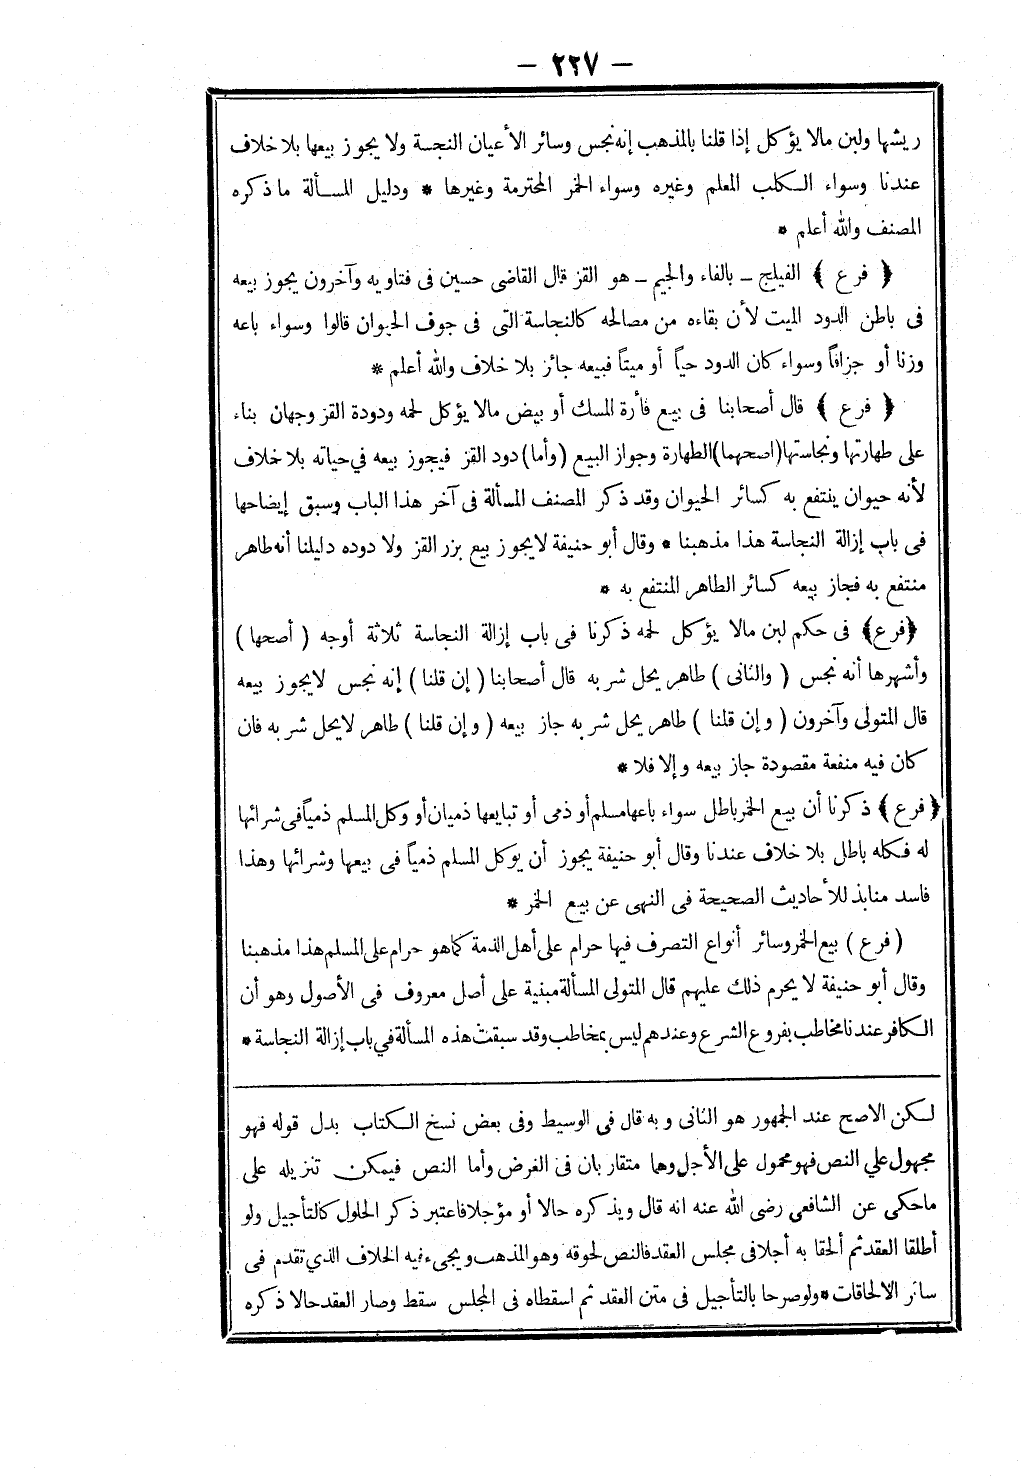 – ٢٢٧ –
ريشها ولبن مالا يؤكل إذا قلنا بالمذهب إنه نجس وسائر الأعيان النجسة ولا يجوز بيعها بلا خلاف
عندنا وسواء الكلب المعلم وغيره وسواء الخمر المحترمة وغيرها * ودليل المسألة ما ذكره
المصنف والله أعلم *
﴿ فرع ﴾ الفيلج – بالفاء والجيم – هو القز قال القاضى حسين فى فتاويه وآخرون يجوز بيعه
فى باطن الدود الميت لأن بقاءه من مصالحه كالنجاسة التى فى جوف الحيوان قالوا وسواء باعه
وزنا أو جزافاً وسواء كان الدود حياً أو ميتاً فبيعه جائز بلا خلاف والله أعلم *
﴿ فرع ﴾ قال أصحابنا فى بيع فأرة المسك أو بيض مالا يؤكل لحمه ودودة القز وجهان بناء
على طهارتها ونجاستها (اصحهما) الطهارة وجواز البيع (وأما) دود القز فيجوز بيعه في حياته بلا خلاف
لأنه حيوان ينتفع به كسائر الحيوان وقد ذكر المصنف المسألة فى آخر هذا الباب وسبق إيضاحها
فى باب إزالة النجاسة هذا مذهبنا * وقال أبو حنيفة لا يجوز بيع بزر القز ولا دوده دليلنا أنه طاهر
منتفع به فجاز بيعه كسائر الطاهر المنتفع به *
﴿فرع﴾ فى حكم لبن مالا يؤكل لحمه ذكرنا فى باب إزالة النجاسة ثلاثة أوجه ( أصحها )
وأشهرها أنه نجس ( والثانى ) طاهر يحل شربه قال أصحابنا ( إن قلنا ) إنه نجس لايجوز بيعه
قال المتولى وآخرون ( وإن قلنا ) طاهر يحل شربه جاز بيعه ( وإن قلنا ) طاهر لايحل شربه فان
كان فيه منفعة مقصودة جاز بيعه وإلا فلا *
﴿ فرع ﴾ ذكرنا أن بيع الخمر باطل سواء باعها مسلم أو ذمى أو تبايعها ذميان أو وكل المسلم ذمياً فى شرائها
له فكله باطل بلا خلاف عندنا وقال أبو حنيفة يجوز أن يوكل المسلم ذمياً فى بيعها وشرائها وهذا
فاسد منابذ للأحاديث الصحيحة فى النهى عن بيع الخمر *
( فرع ) بيع الخمر وسائر أنواع التصرف فيها حرام على أهل الذمة كما هو حرام على المسلم هذا مذهبنا
وقال أبو حنيفة لا يحرم ذلك عليهم قال المتولى المسألة مبنية على أصل معروف فى الأصول وهو أن
الكافر عندنا مخاطب بفروع الشرع وعندهم ليس بمخاطب وقد سبقت هذه المسألة في باب إزالة النجاسة *
لكن الاصح عند الجمهور هو الثانى وبه قال فى الوسيط وفى بعض نسخ الكتاب بدل قوله فهو
مجهول علي النص فهو محمول على الأجل وهما متقاربان فى الغرض وأما النص فيمكن تنزيله على
ماحكى عن الشافعي رضى الله عنه انه قال ويذكره حالا أو مؤجلا فاعتبر ذكر الحلول كالتأجيل ولو
أطلقا العقد ثم ألحقا به أجلا فى مجلس العقد فالنص لحوقه وهو المذهب ويجيء فيه الخلاف الذي تقدم فى
سائر الالحاقات * ولو صرحا بالتأجيل فى متن العقد ثم اسقطاه فى المجلس سقط وصار العقد حالا ذكره